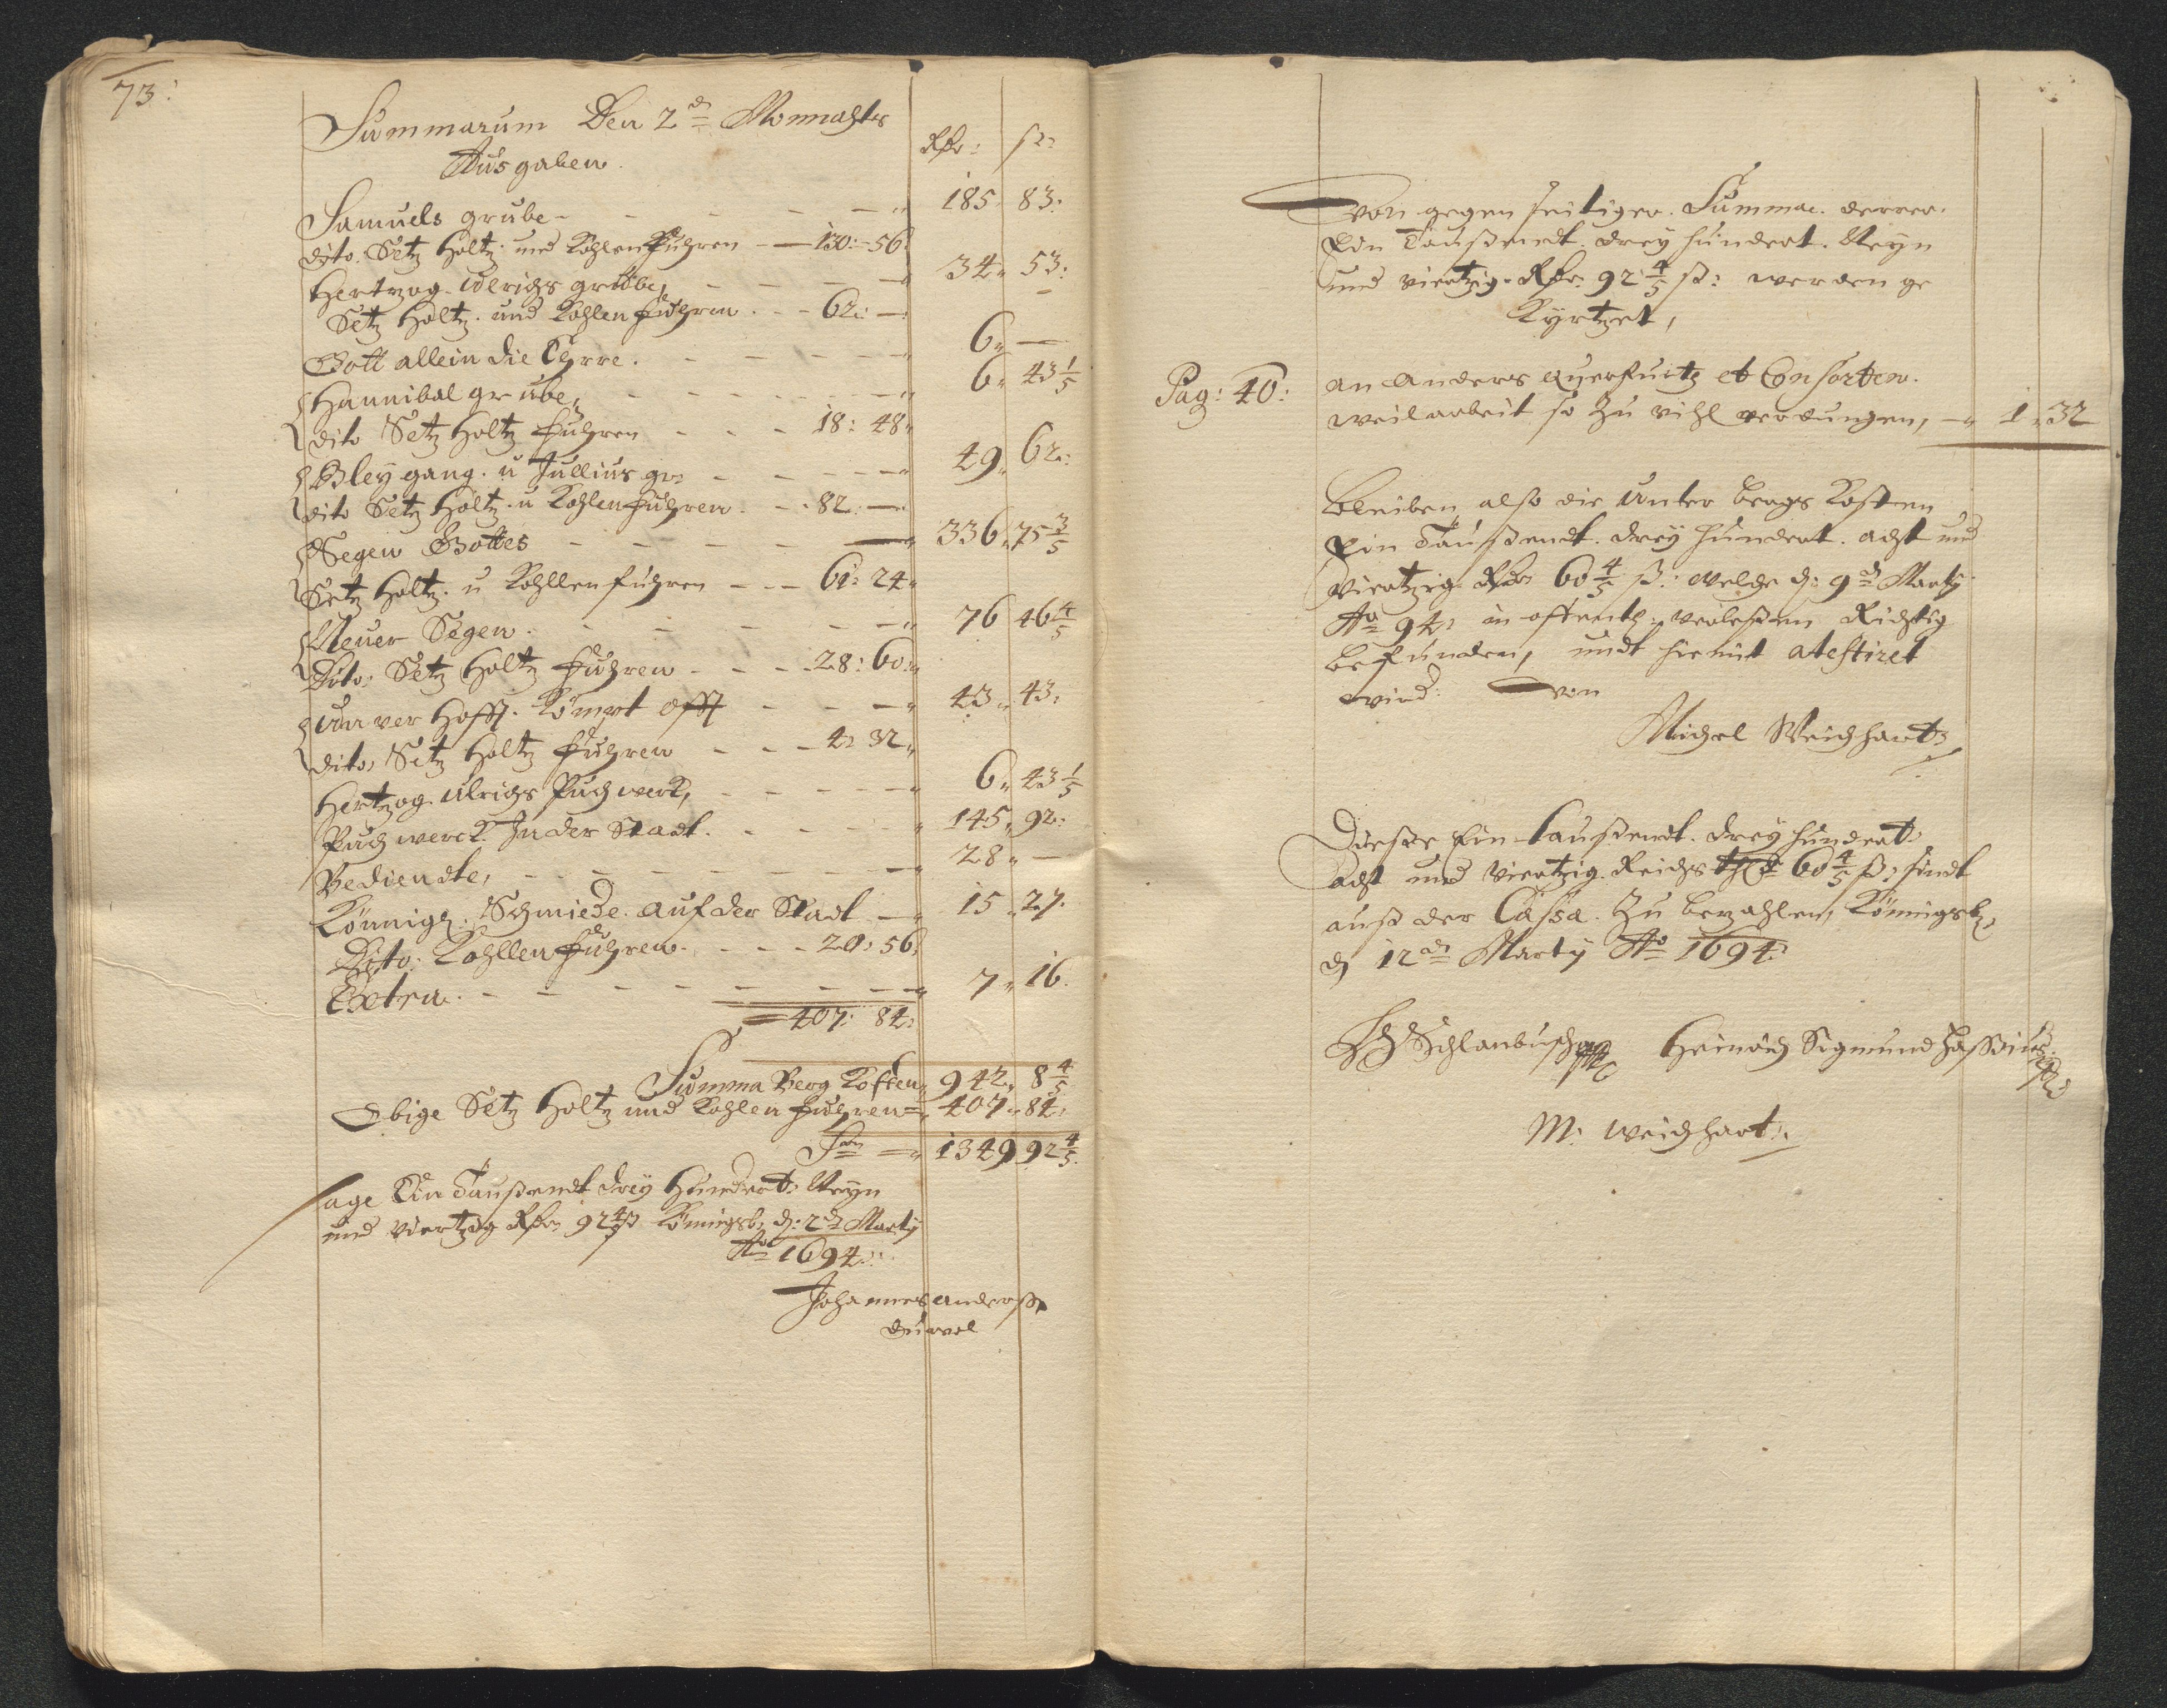 73:
Summarum Den 2den Monnahts
Ausgaben.
Rdr: ß:
Samuels grube - - - - - " 185. 83:
dito. Setz Holtz. und Kohlen Fuhren - - 130: 56
Hertzog Ulrichs grube, - - - - 34" 53:
Setz Holtz. und Kohlen Fuhren. - - 62: —
Gott allein die Ehrre. - - - - " 6" —
Hannibal grube, - - - - " 6" 43 1/5
dito Setz Holtz Fuhren - - - 18: 48"
Bleygang. u Jullius gr: - - - - " 49" 62:
dito Setz Holtz. u Kohlen Fuhren. - - 82: —
Segen Gottes - - - - - " 336" 75 3/5
Setz Holtz. u Kohllen fuhren - - - 61: 24"
Neuer Segen. - - - - - " 76 46 4/5
Dito: Setz Holtz Fuhren - - - 28: 60:"
Un ver Hofft. Kömpt offt - - - " 43" 43:
dito, Setz Holtz Fuhren - - - 4: 32"
Hertzog Ulrichs Puch werk, - - - - " 6" 43 1/5
Puch werck. In der Stadt. - - - - " 145" 92:
Bediendte, - - - - - - - " 28" —
Könnigl. Schmiede. auf der Stadt - " 15" 27.
Dito: Kohllen Fuhren. - - - 20: 56:
Extra. - - - - - - - " 7" 16.
407: 84:
Summa Berg Kosten" 942" 8 4/5
Obige Setz Holtz und Kohlen Fuhren = " 407" 84:
Sa = " 1349 92 4/5
sage Ein Taußendt drey Hundert: Neyn
und viertzig Rdr 92 4/5 ß Königsb. d: 2t Marty
Ao 1694:
Johannes andreaß
düwel
Von gegen seitiger. Summae. derer.
Ein Taußendt. drey hundert. Neyn
und viertzig. Rdr. 92 4/5 ß: werden ge
Kyrtzet,
Pag: 40: an Anders Querfurtz et Consorten.
weil arbeit so zu vihl verdungen, - " 1" 32
Bleiben also die unter bergs Kosten
Ein Taußendt. drey hundert. acht und
Viertzig Rdr 60 4/5 ß: welche d: 9t Marty
Ao 94: in offentl: verleßen Richtig
befunden, undt hiemit atestiret
wird: Von
Michel Weichhart
Dieße Ein taußendt. drey hundert
acht und Viertzig. Reichs thlr 60 4/5 ß: sindt
auß der Cassa. zu bezahlen, Königsb,
d 12t Marty Ao 1694:
H Schlanbusch Heinrich Sigmund Hassius
M: Weichhart: